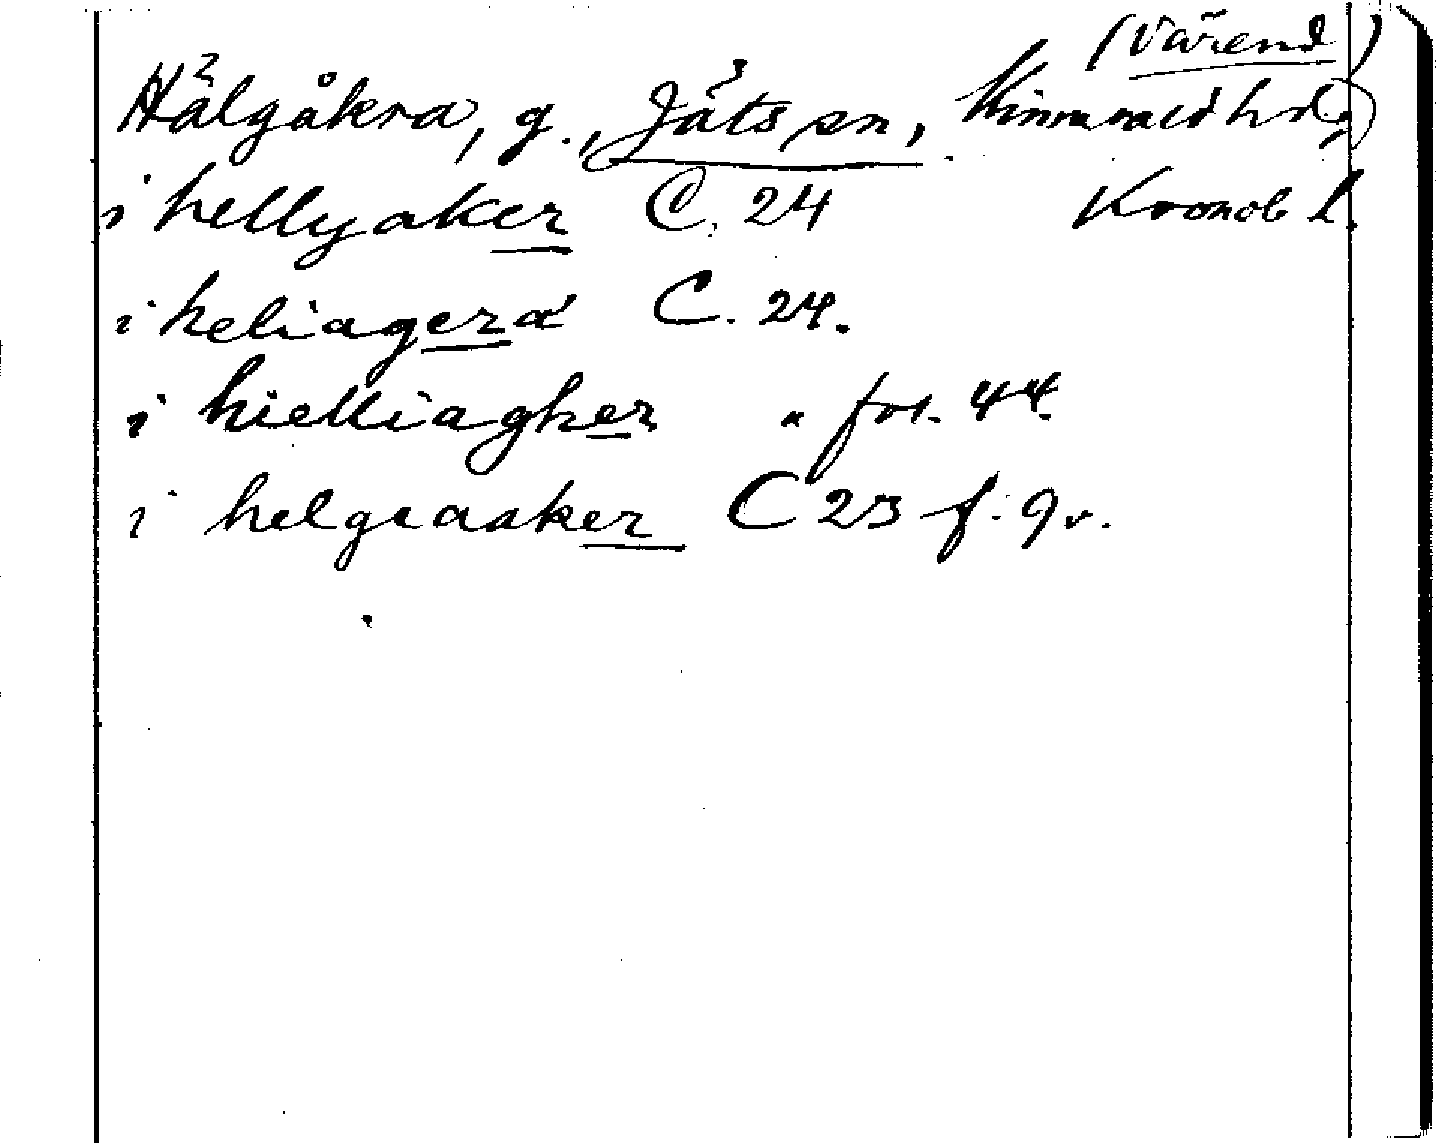 (Värend)
Hälgåkra, g., Jäts sn, Kinnevald hd,
i hellyaker C. 24 Kronob l.
i heliagera C. 24.
i hielliagher " fol. 44.
i helgeaaker C 23 f. 9v.